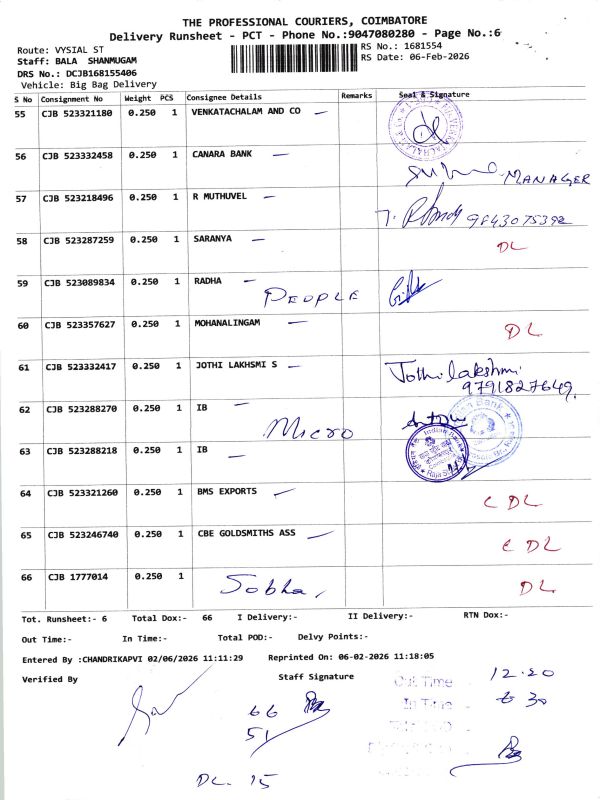 THE PROFESSIONAL COURIERS, COIMBATORE
Delivery Runsheet - PCT - Phone No.:9047080280 - Page No.:6
Route: VYSIAL ST
Staff: BALA SHANMUGAM
DRS No.: DCJB168155406
Vehicle: Big Bag Delivery
RS No.: 1681554
RS Date: 06-Feb-2026
S No Consignment No Weight PCS Consignee Details Remarks Seal & Signature
55 CJB 523321180 0.250 1 VENKATACHALAM AND CO
56 CJB 523332458 0.250 1 CANARA BANK
MANAGER
57 CJB 523218496 0.250 1 R MUTHUVEL
9843075392
58 CJB 523287259 0.250 1 SARANYA
DL
59 CJB 523089834 0.250 1 RADHA
PEOPLE
60 CJB 523357627 0.250 1 MOHANALINGAM
DL
61 CJB 523332417 0.250 1 JOTHI LAKHSMI S
Jothilakshmi
9791827649.
62 CJB 523288270 0.250 1 IB
Micro
63 CJB 523288218 0.250 1 IB
64 CJB 523321260 0.250 1 BMS EXPORTS
C DL
65 CJB 523246740 0.250 1 CBE GOLDSMITHS ASS
C DL
66 CJB 1777014 0.250 1 Sobha,
DL
Tot. Runsheet:- 6 Total Dox:- 66 I Delivery:- II Delivery:- RTN Dox:-
Out Time:- In Time:- Total POD:- Delvy Points:-
Entered By :CHANDRIKAPVI 02/06/2026 11:11:29 Reprinted On: 06-02-2026 11:18:05
Verified By Staff Signature
Out Time 12.20
In Time 6 30
66
51
DL. 15